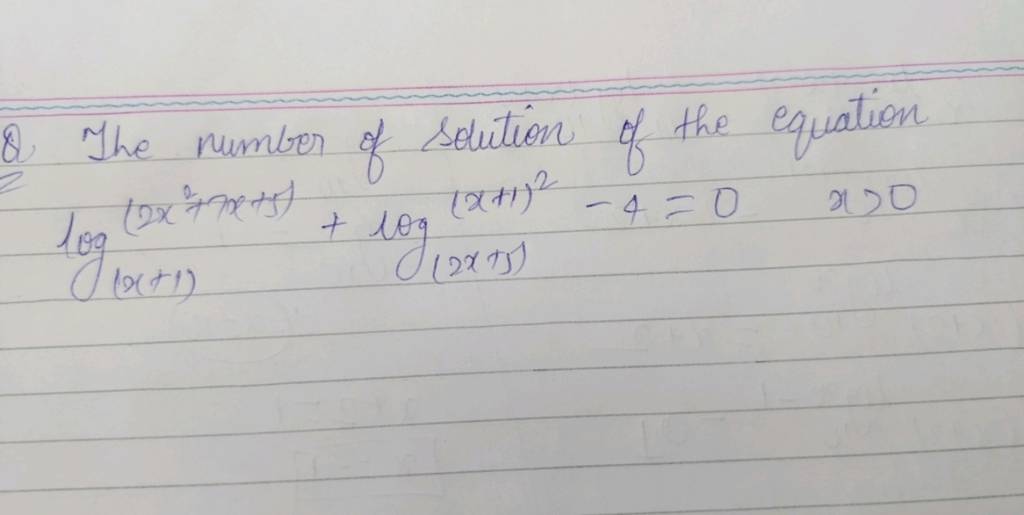 Q The number of solution of the equation
log_(x+1) (2x²+7x+5) + log_(2x+5) (x+1)² - 4 = 0 x>0